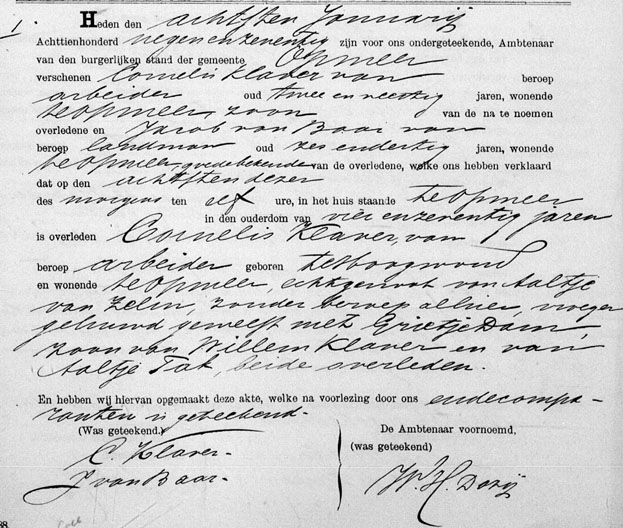 1
Heden den achtsten Januarij
Achttienhonderd negenenzeventig zijn voor ons ondergeteekende, Ambtenaar
van den burgerlijken stand der gemeente Opmeer
verschenen Cornelis Klaver van beroep
arbeider oud twee en veertig jaren, wonende
te Opmeer, zoon van de na te noemen
overledene en Jacob van Baar van
beroep landman oud zes en dertig jaren, wonende
te Opmeer, goede bekende van de overledene, welke ons hebben verklaard
dat op den achtsten dezer
des morgens ten elf ure, in het huis staande te Opmeer
in den ouderdom van vier en zeventig jaren
is overleden Cornelis Klaver, van
beroep arbeider geboren te Hoogwoud
en wonende te Opmeer, echtgenoot van Aaltje
van Zelm, zonder beroep alhier, vroeger
gehuwd geweest met Grietje Dam,
zoon van Willem Klaver en van
Aaltje Tak, beide overleden.
En hebben wij hiervan opgemaakt deze akte, welke na voorlezing door ons en de compa-
ranten is geteekend.
(Was geteekend.) De Ambtenaar voornoemd,
(was geteekend)
C. Klaver.
J van Baar. W. H. Dorij